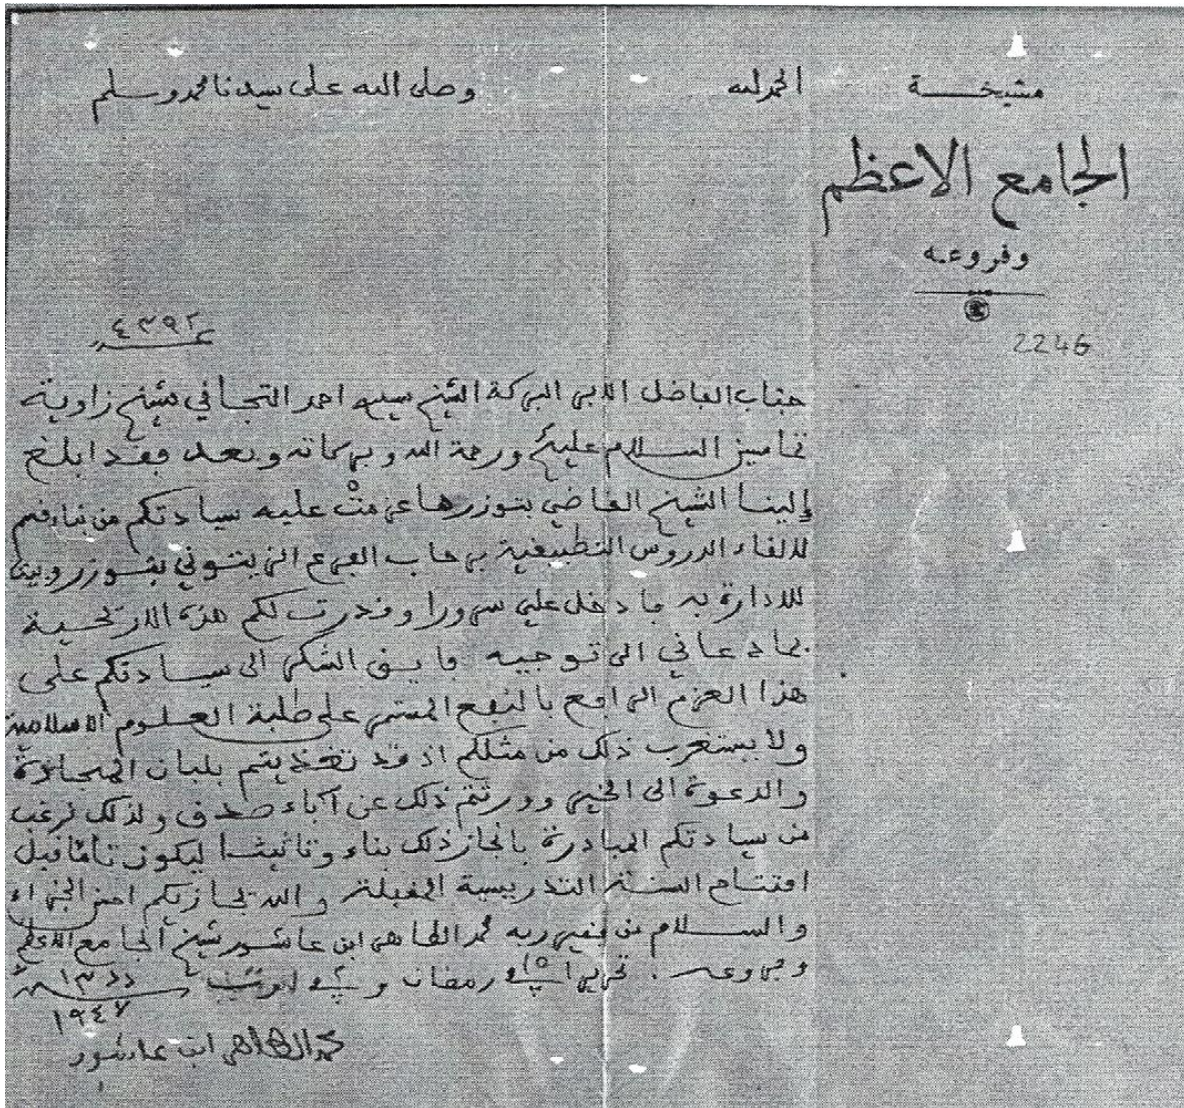 مشيخة
الجامع الاعظم
وفروعه
2246
الحمد لله
وصلى الله على سيدنا محمد وسلم
٤٣٩٢
جناب الفاضل الابي البركة الشيخ سيدي احمد التجاني شيخ زاوية
تماسين السلام عليكم ورحمة الله وبركاته وبعد فقد ابلغ
إلينا الشيخ القاضي بتوزر ما عزمتْ عليه سيادتكم من بناء قسم
لالقاء الدروس التطبيقية برحاب الفرع الزيتوني بتوزر
للادارة به ما دخل علي سرورا وقدرت لكم هذه الاريحية
بما دعاني الى توجيه فايق الشكر الى سيادتكم على
هذا العزم الرافع بالنفع المستمر على طلبة العلوم الاسلامية
ولا يستغرب ذلك من مثلكم اذ قد تغذيتم بلبان
والدعوة الى الخير وورثتم ذلك عن آباء صدق ولذلك نرغب
من سيادتكم المبادرة بانجاز ذلك بناء وتاثيثا ليكون تامّا قبل
افتتاح السنة التدريسية المقبلة والله يجازيكم احسن الجزاء
والسلام من فقير ربه محمد الطاهر ابن عاشور شيخ الجامع الاعظم
وفروعه . تحريرا في ١٥ رمضان وفي ٢
١٩٤٧
محمد الطاهر ابن عاشور